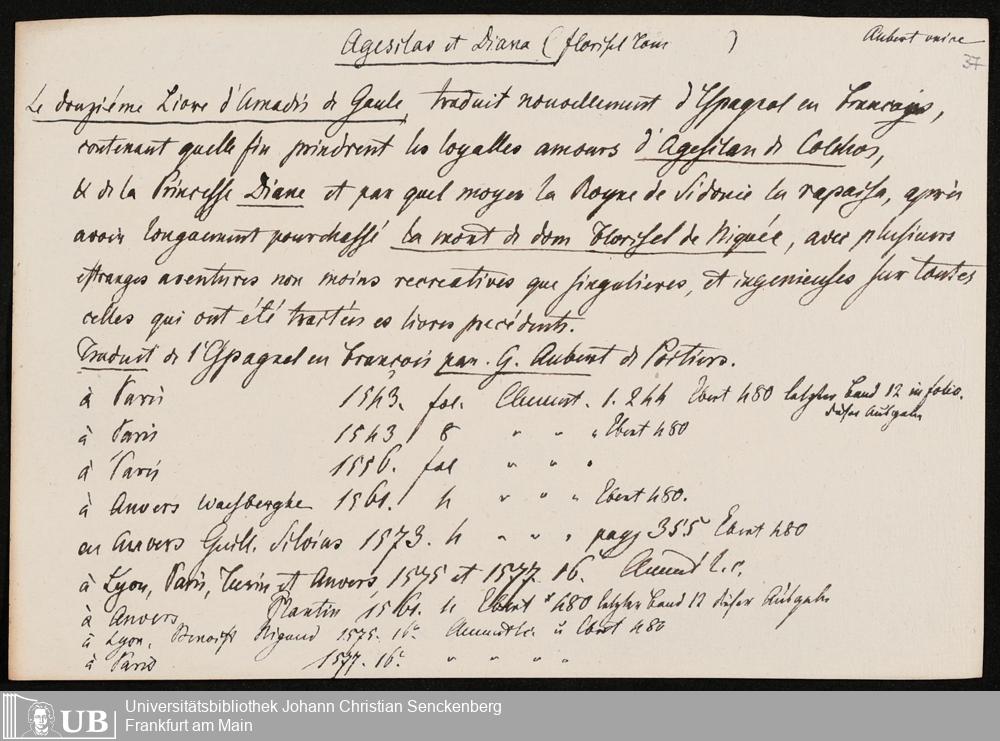 Agesilas et Diana (florisel Tom )
Aubert
37
Le douziéme Livre d'Amadis de Gaule traduit nouvellement d'Espagnol en Francoys,
contenant quelle fin prindrent les loyalles amours d'Agesilan de Colchos,
& de la Princesse Diane et par quel moyen la Royne de Sidonie la rapaisa, après
avoir longuement pourchassé la mort de dom Florisel de Niquée, avec plusieurs
estranges aventures non moins recreatives que singulieres, et ingenieuses sur toutes
celles qui ont été traitées es livres precédents.
Traduit de l'Espagnol en François par G. Aubert de Poitiers.
à Paris 1543. fol. Clement. 1. 244 Ebert 480 letzter Band 12 in folio.
dieser Ausgabe
à Paris 1543 8 " " " Ebert 480
à Paris 1556. fol " " "
à Anvers Waesberghe 1561. 4 " " " Ebert 480.
en Anvers Guill. Silvius 1573. 4 " " " pag. 355 Ebert 480
à Lyon, Paris, Turin et Anvers, 1575 et 1577. 16. Clement l. c.
à Anvers Plantin 1561. 4 Ebert 480 letzter Band 12 dieser Ausgabe
à Lyon, Benoist Rigaud 1575. 16. Clement l.c. u Ebert 480
à Paris 1577. 16. " " " "
UB
Universitätsbibliothek Johann Christian Senckenberg
Frankfurt am Main